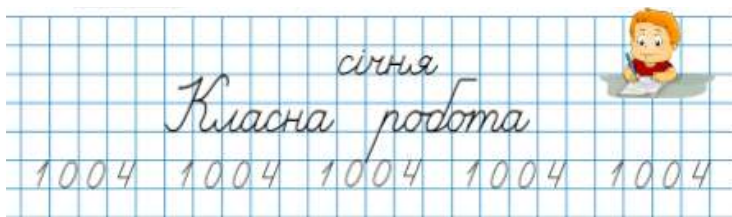 січня
Класна робота
1004 1004 1004 1004 1004